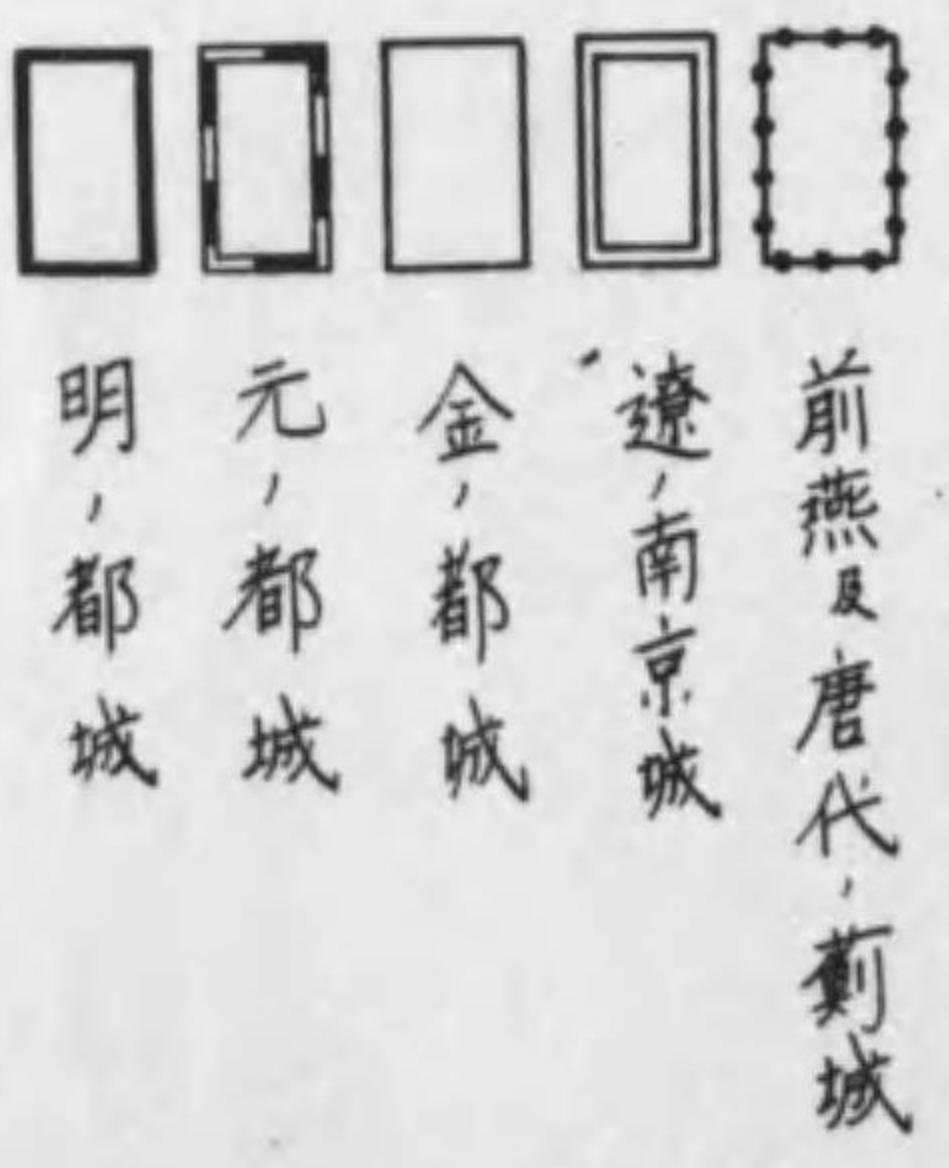 前燕及唐代，薊城
遼，南京城
金，都城
元，都城
明，都城